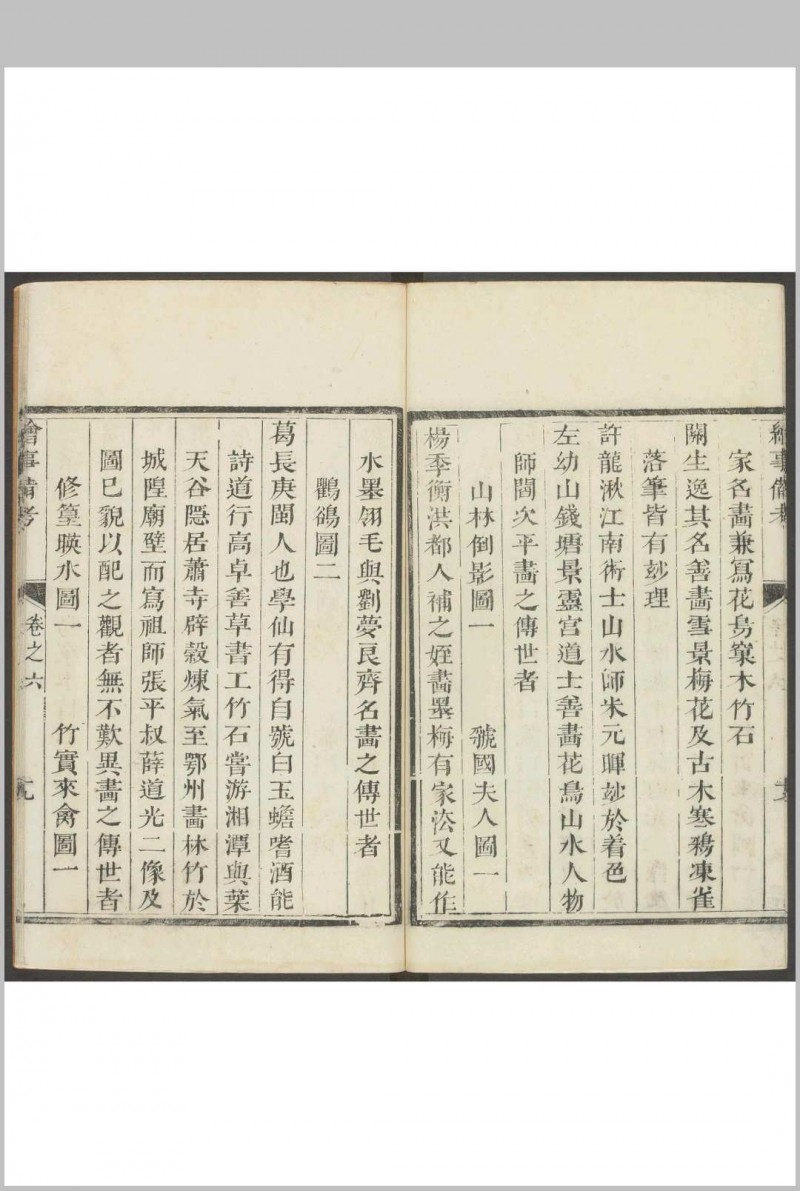 家名畫兼冩花鳥窠木竹石
關生逸其名善畫雪景梅花及古木寒鵶凍雀
落筆皆有玅理
許龍湫江南術士山水師米元暉玅於着色
左幼山錢塘景靈宮道士善畫花鳥山水人物
師閻次平畫之傳世者
山林倒影圖一 虢國夫人圖一
楊季衡洪都人補之姪畫墨梅有家法又能作
水墨翎毛與劉夢良齊名畫之傳世者
鸜鵒圖二
葛長庚閩人也學仙有得自號白玉蟾嗜酒能
詩道行高卓善草書工竹石嘗游湘潭與葉
天谷隠居蕭寺辟穀煉氣至鄂州畫林竹於
城隍廟壁而冩祖師張平叔薛道光二像及
圖已貌以配之觀者無不歎異畫之傳世者
修篁暎水圖一 竹實來禽圖一
繪事備考
卷之六